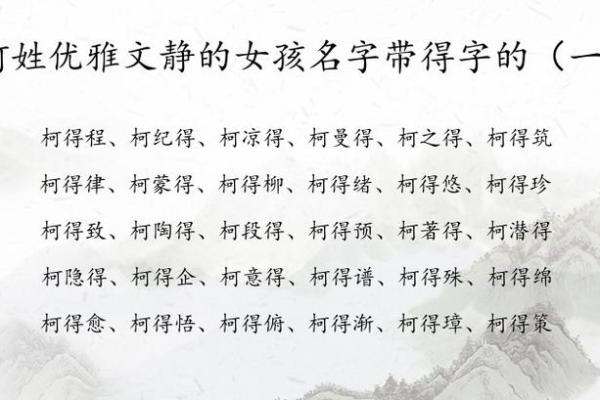 姓优雅文静的女孩名字带得字的（一
柯得程、柯纪得、柯凉得、柯曼得、柯之得、柯得筑
柯得律、柯蒙得、柯得柳、柯得绪、柯得悠、柯得珍
柯得致、柯陶得、柯段得、柯得预、柯著得、柯潜得
柯隐得、柯得企、柯意得、柯得谱、柯得殊、柯得绵
柯得愈、柯得悟、柯得俯、柯得渐、柯得璋、柯得策